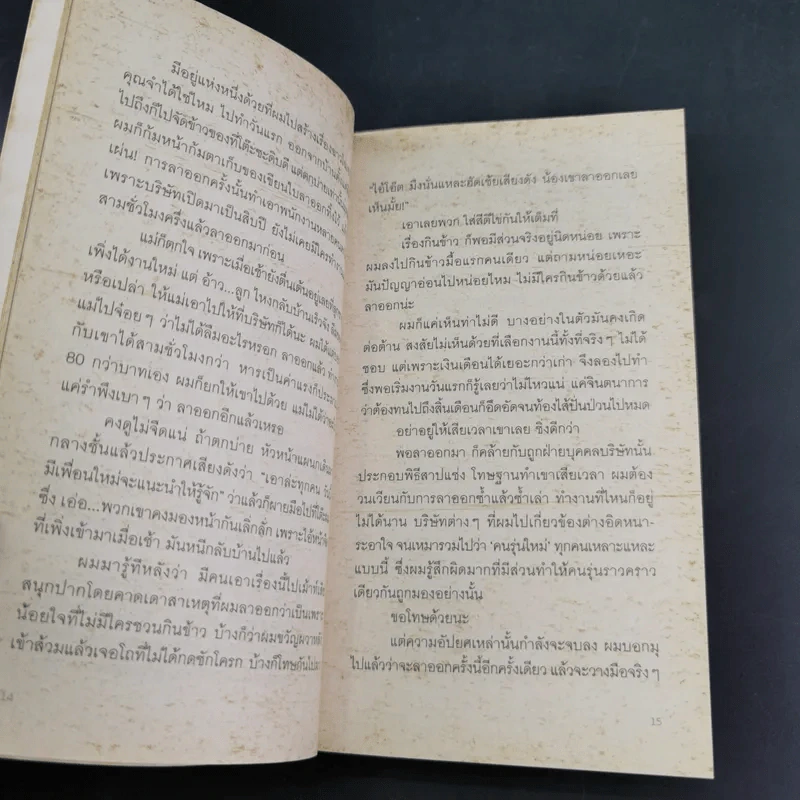 มีอยู่แห่งหนึ่งด้วยที่ผมไปสร้าง
คุณจำได้ใช่ไหม ไปทำวันแรก ออกจากบ้าน
ไปถึงก็ไปจัดข้าวของที่โต๊ะซะดิบดี แต่ตกบ่าย
ผมก็ก้มหน้าก้มตาเก็บของเขียนใบลาออกทิ้งไว้
เผ่น! การลาออกครั้งนั้นทำเอาพนักงานหลาย
เพราะบริษัทเปิดมาเป็นสิบปี ยังไม่เคยมีใครทำ
สามชั่วโมงครึ่งแล้วลาออกมาก่อน
แม่ก็ตกใจ เพราะเมื่อเช้ายังตื่นเต้นอยู่เลยที่
เพิ่งได้งานใหม่ แต่ อ้าว...ลูก ไหงกลับบ้านเร็วจัง
หรือเปล่า ให้แม่เอาไปให้ที่บริษัทก็ได้นะ
แม่ไปจ๋อยๆ ว่าไม่ได้ลืมอะไรหรอก ลาออกแล้ว
กับเขาได้สามชั่วโมงกว่า หารเป็นค่าแรงก็
80 กว่าบาทเอง ผมก็ยกให้เขาไปด้วย แม่ไม่ได้
แค่รำพึงเบาๆ ว่า ลาออกอีกแล้วเหรอ
คงดูไม่จืดแน่ ถ้าตกบ่าย หัวหน้าแผนก
กลางชั้นแล้วประกาศเสียงดังว่า "เอาล่ะทุกคน
มีเพื่อนใหม่จะแนะนำให้รู้จัก" ว่าแล้วก็ผายมือไปที่โต๊ะ
ซึ่ง เอ่อ...พวกเขาคงมองหน้ากันเลิ่กลั่ก เพราะไอ้
ที่เพิ่งเข้ามาเมื่อเช้า มันหนีกลับบ้านไปแล้ว
ผมมารู้ทีหลังว่า มีคนเอาเรื่องนี้ไปเม้าท์
สนุกปากโดยคาดเดาสาเหตุที่ผมลาออกว่าเป็นเพราะ
น้อยใจที่ไม่มีใครชวนกินข้าว บ้างก็ว่าผมขวัญผวา
เข้าส้วมแล้วเจอโถที่ไม่ได้กดชักโครก บ้างก็โทษกันไป
14
"ไอ้โอ๊ต มึงนั่นแหละฮัดเช้ยเสียงดัง น้องเขาลาออกเลย
เห็นมั้ย!"
เอาเลยพวก ใส่สีตีไข่กันให้เต็มที่
เรื่องกินข้าว ก็พอมีส่วนจริงอยู่นิดหน่อย เพราะ
ผมลงไปกินข้าวมื้อแรกคนเดียว แต่ถามหน่อยเหอะ
มันปัญญาอ่อนไปหน่อยไหม ไม่มีใครกินข้าวด้วยแล้ว
ลาออกน่ะ
ผมก็แค่เห็นท่าไม่ดี บางอย่างในตัวมันคงเกิด
ต่อต้าน สงสัยไม่เห็นด้วยที่เลือกงานนี้ทั้งที่จริงๆ ไม่ได้
ชอบ แต่เพราะเงินเดือนได้เยอะกว่าเก่า จึงลองไปทำ
ซึ่งพอเริ่มงานวันแรกก็รู้เลยว่าไม่ไหวแน่ แค่จินตนาการ
ว่าต้องทนไปถึงสิ้นเดือนก็อึดอัดจนท้องไส้ปั่นป่วนไปหมด
อย่าอยู่ให้เสียเวลาเขาเลย ซิ่งดีกว่า
พอลาออกมา ก็คล้ายกับถูกฝ่ายบุคคลบริษัทนั้น
ประกอบพิธีสาปแช่ง โทษฐานทำเขาเสียเวลา ผมต้อง
วนเวียนกับการลาออกซ้ำแล้วซ้ำเล่า ทำงานที่ไหนก็อยู่
ไม่ได้นาน บริษัทต่างๆ ที่ผมไปเกี่ยวข้องต่างอิดหนา-
ระอาใจ จนเหมารวมไปว่า 'คนรุ่นใหม่' ทุกคนเหลาะแหละ
แบบนี้ ซึ่งผมรู้สึกผิดมากที่มีส่วนทำให้คนรุ่นราวคราว
เดียวกันถูกมองอย่างนั้น
ขอโทษด้วยนะ
แต่ความอัปยศเหล่านั้นกำลังจะจบลง ผมบอกมุ
ไปแล้วว่าจะลาออกครั้งนี้อีกครั้งเดียว แล้วจะวางมือจริงๆ
15